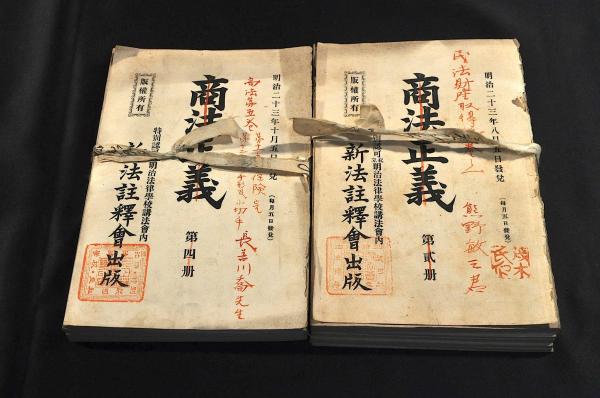 明治二十三年八月五日發兌
(每月五日發兌)
民法財産取得
熊野敏三君
商法正義
第貳册
明治法律學校講法會內
新法註釋會出版
版權所有
明治二十三年十月五日發兌
(每月五日發兌)
商法第五卷
保険
小切手
長谷川喬先生
商法正義
第四册
特別認
明治法律學校講法會內
新法註釋會出版
版權所有